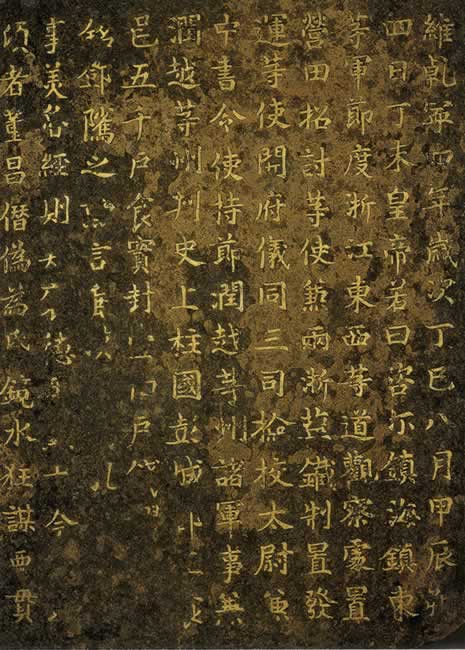 維乹寧四年歲次丁巳八月甲辰朔
四日丁未皇帝若曰咨尓鎮海鎮東
等軍節度浙江東西等道觀察處置
營田招討等使兼兩浙鹽鐵制置發
運等使開府儀同三司撿校太尉兼
中書令使持節潤越等州諸軍事兼
潤越等州刺史上柱國彭城
邑五千戶食實封百戶
鄧騭之言
事美經則德今
頃者董昌僭偽為昬鏡水狂謀惡貫